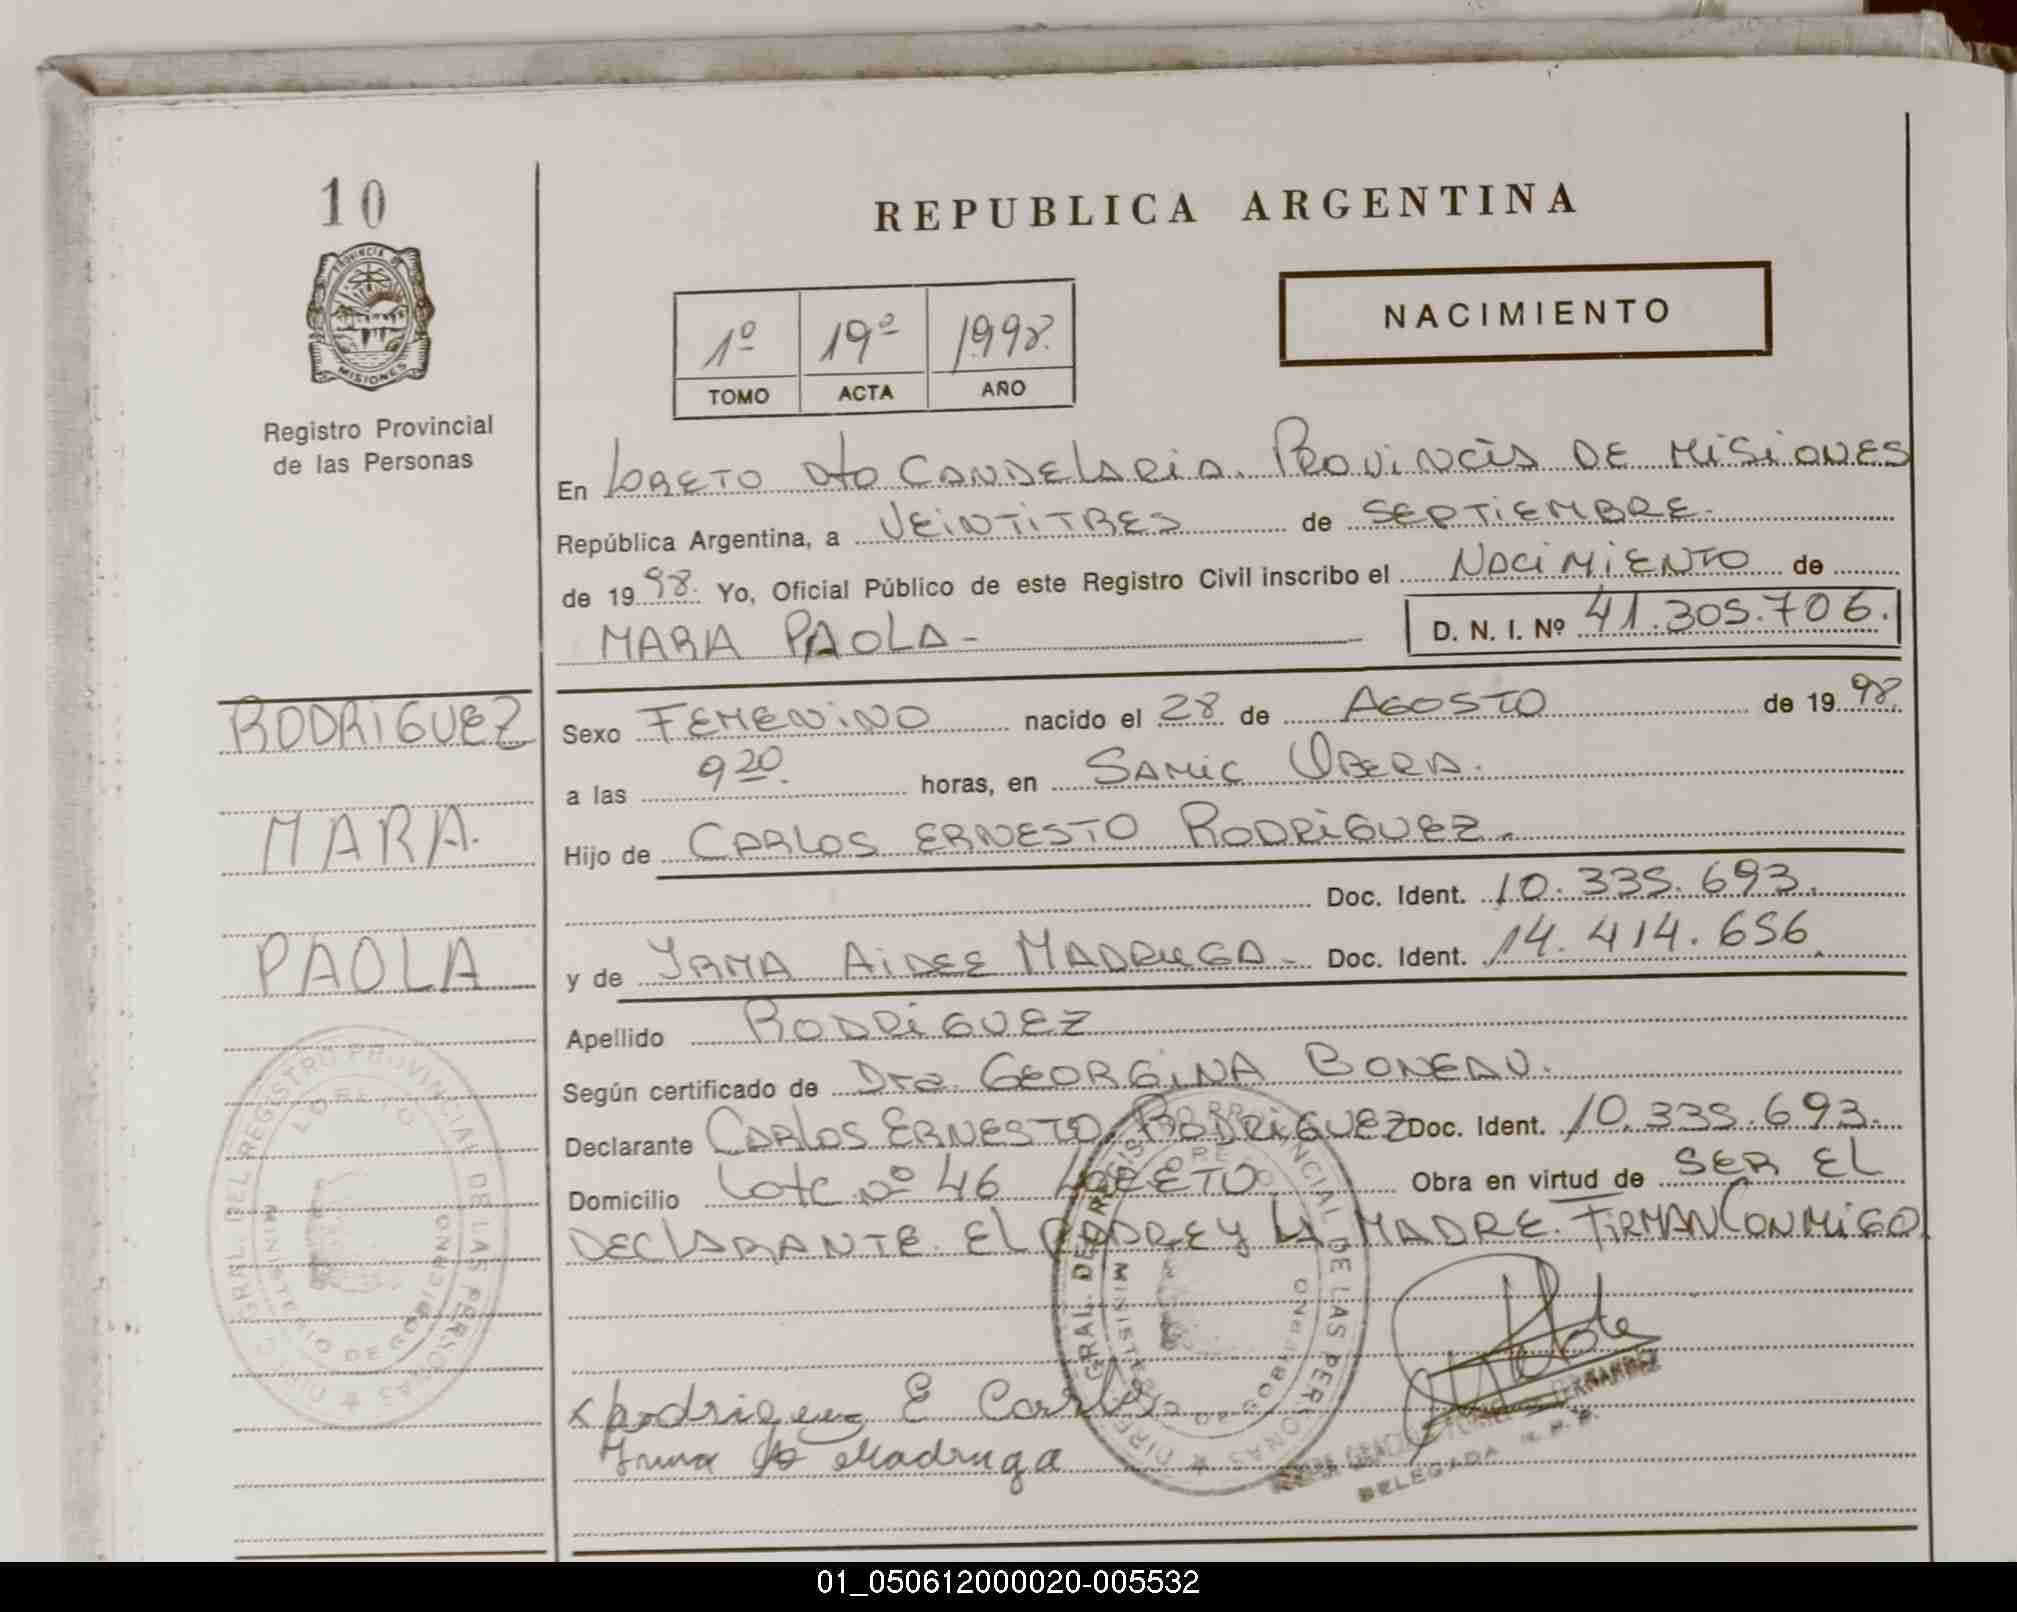 10
PROVINCIA DE
MISIONES
Registro Provincial
de las Personas
REPUBLICA ARGENTINA
1º 19º 1998.
TOMO ACTA AÑO
NACIMIENTO
En LORETO Dto CANDELARIA. PROVINCIA DE MISIONES
República Argentina, a VEINTITRES de SEPTIEMBRE.
de 19 98. Yo, Oficial Público de este Registro Civil inscribo el NACIMIENTO de
MARA PAOLA - D. N. I. Nº 41.305.706.
RODRIGUEZ
MARA.
PAOLA
Sexo FEMENINO nacido el 28 de AGOSTO de 19 98.
a las 9 20. horas, en SAMIC OBERA.
Hijo de CARLOS ERNESTO RODRIGUEZ.
Doc. Ident. 10.335.693.
y de YRMA AIDEE MADRUGA - Doc. Ident. 14.414.656.
Apellido RODRIGUEZ
Según certificado de Dra. GEORGINA BONEAU.
Declarante CARLOS ERNESTO RODRIGUEZ Doc. Ident. 10.335.693.
Domicilio Lote Nº 46 LORETO. Obra en virtud de SER EL
DECLARANTE. EL PADRE Y LA MADRE. FIRMAN CONMIGO.
DIREC. GRAL. DEL REGISTRO PROVINCIAL DE LAS PERSONAS
LORETO
MINISTERIO DE GOBIERNO
DIREC. GRAL. DEL REGISTRO PROVINCIAL DE LAS PERSONAS
MINISTERIO DE GOBIERNO
x Rodriguez E Carlos
Irma A Madruga
FERNANDEZ
DELEGADA R. P. P.
01_050612000020-005532